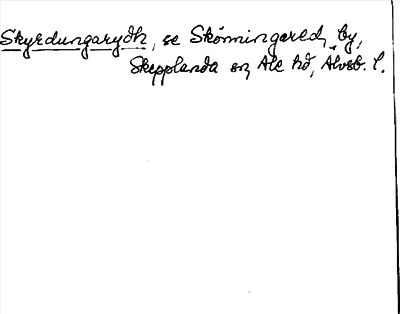 Skyrdungarydh, se Skönningared, by,
Skepplanda sn, Ale hd, Älvsb. l.